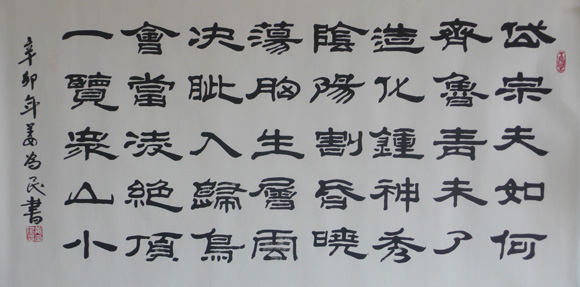 岱宗夫如何
齊魯青未了
造化鍾神秀
陰陽割昏曉
蕩胸生層雲
決眦入歸鳥
會當淩絕頂
一覽衆山小
辛卯年姜為民書